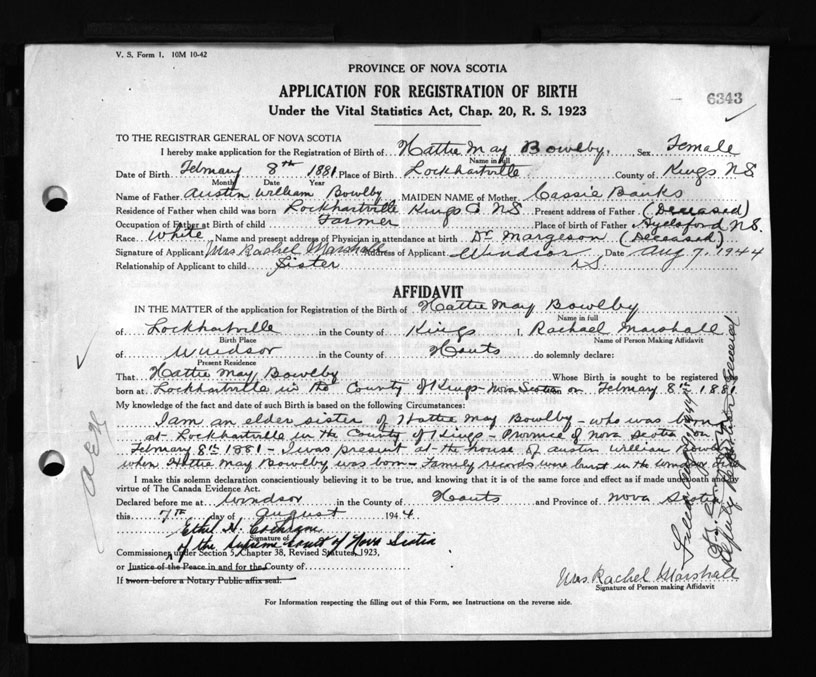 V. S. Form 1. 10M 10-42
PROVINCE OF NOVA SCOTIA
APPLICATION FOR REGISTRATION OF BIRTH
6343
Under the Vital Statistics Act, Chap. 20, R. S. 1923
TO THE REGISTRAR GENERAL OF NOVA SCOTIA
I hereby make application for the Registration of Birth of Hattie May Bowlby. Sex Female
Name in full
Date of Birth February 8th 1881 Place of Birth Lockhartville County of Kings NS
Month Date Year
Name of Father Austin William Bowlby MAIDEN NAME of Mother Cassie Banks
Residence of Father when child was born Lockhartville Kings Co NS Present address of Father (Deceased)
Occupation of Father at Birth of child Farmer Place of birth of Father Aylesford N.S.
Race White Name and present address of Physician in attendance at birth Dr Margeson (Deceased)
Signature of Applicant Mrs Rachel Marshall Address of Applicant Windsor NS Date Aug 7, 1944
Relationship of Applicant to child Sister
AFFIDAVIT
IN THE MATTER of the application for Registration of the Birth of Hattie May Bowlby
Name in full
of Lockhartville in the County of Kings I, Rachael Marshall
Birth Place Name of Person Making Affidavit
of Windsor in the County of Hants do solemnly declare:
Present Residence
That Hattie May Bowlby Whose Birth is sought to be registered was
born at Lockhartville in the County of Kings - Nova Scotia on February 8th 1881
My knowledge of the fact and date of such Birth is based on the following Circumstances:
I am an elder sister of Hattie May Bowlby - who was born
at Lockhartville in the County of Kings - Province of Nova Scotia on
February 8th 1881 - I was present at the house of Austin William Bowlby
when Hattie May Bowlby was born - Family records were burnt in the Windsor fire
I make this solemn declaration conscientiously believing it to be true, and knowing that it is of the same force and effect as if made under oath and by
virtue of The Canada Evidence Act.
Declared before me at Windsor in the County of Hants and Province of Nova Scotia
this 7th day of August 1944
Ethel H. Cochrane
Signature of
of the Supreme Court of Nova Scotia
Commissioner, under Section 5, Chapter 38, Revised Statutes, 1923,
or Justice of the Peace in and for the County of
If sworn before a Notary Public affix seal.
Mrs. Rachel Marshall
Signature of Person making Affidavit
For Information respecting the filling out of this Form, see Instructions on the reverse side.
Deputy Registrar General